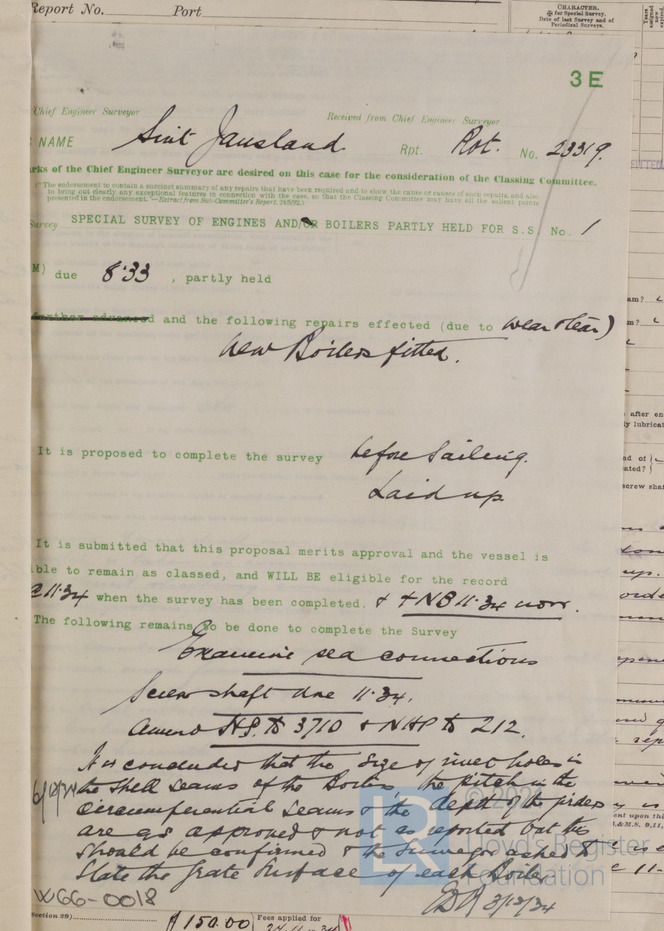 Report No. Port
CHARACTER.
for Special Survey.
Date of last Survey and of
Periodical Surveys.
3 E
Chief Engineer Surveyor
Received from Chief Engineer Surveyor
NAME Sint Jansland. Rpt. Rot. No. 23319.
rks of the Chief Engineer Surveyor are desired on this case for the consideration of the Classing Committee.
The endorsement to contain a succinct summary of any repairs that have been required and to show the cause or causes of such repairs, and also
to bring out clearly any exceptional features in connection with the case, so that the Classing Committee may have all the salient points
presented in the endorsement."—Extract from Sub-Committee's Report,
Survey SPECIAL SURVEY OF ENGINES AND/OR BOILERS PARTLY HELD FOR S.S. No. 1
M) due 8.33 , partly held
further advanced and the following repairs effected (due to wear & tear)
New Boilers fitted.
It is proposed to complete the survey before sailing.
Laid up
It is submitted that this proposal merits approval and the vessel is
ible to remain as classed, and WILL BE eligible for the record
11.34 when the survey has been completed. & + NB 11.34 now.
The following remains to be done to complete the Survey
Examine sea connections
Screw shaft due 11.34.
Amend H.P. to 3710 & NHP to 212.
It is concluded that the size of rivet holes in
the shell seams of the Boilers, the pitch in the
circumferential seams & the depth of the girders
are as approved & not as reported but this
should be confirmed & the Surveyor asked to
state the grate surface of each Boiler
3/12/34
6/12/34
© 2021
Lloyd's Register
Foundation
W66-0018
Section 29)
£150.00
Fees applied for
24.11.34